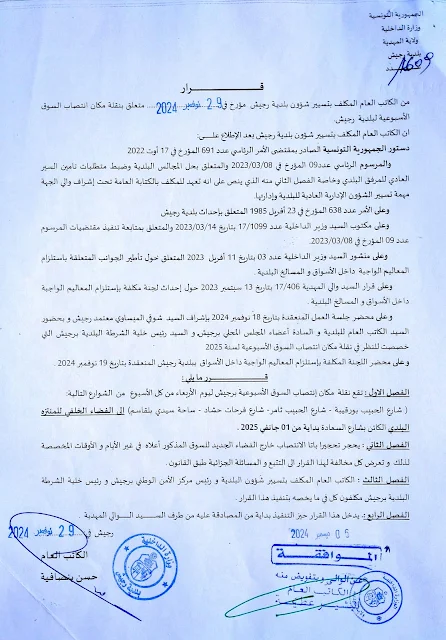 الجمهورية التونسية
وزارة الداخلية
ولاية المهدية
بلدية رجيش
عدد 1609
قـــرار
من الكاتب العام المكلف بتسيير شؤون بلدية رجيش مؤرخ في 29 نوفمبر 2024 متعلق بنقلة مكان انتصاب السوق
الأسبوعية لبلدية رجيش.
ان الكاتب العام المكلف بتسيير شؤون بلدية رجيش بعد الإطلاع على:
دستور الجمهورية التونسية الصادر بمقتضى الأمر الرئاسي عدد 691 المؤرخ في 17 أوت 2022
والمرسوم الرئاسي عدد09 المؤرخ في 2023/03/08 والمتعلق بحل المجالس البلدية وضبط متطلبات تامين السير
العادي للمرفق البلدي وخاصة الفصل الثاني منه الذي ينص على انه تعهد للمكلف بالكتابة العامة تحت إشراف والي الجهة
مهمة تسيير الشؤون الإدارية العادية للبلدية وإدارتها.
وعلى الأمر عدد 638 المؤرخ في 23 أفريل 1985 المتعلق بإحداث بلدية رجيش
وعلى مكتوب السيد وزير الداخلية عدد 17/1099 بتاريخ 2023/03/14 والمتعلق بمتابعة تنفيذ مقتضيات المرسوم
عدد 09 المؤرخ في 2023/03/08.
وعلى منشور السيد وزير الداخلية عدد 03 بتاريخ 11 أفريل 2023 المتعلق حول تأطير الجوانب المتعلقة باستلزام
المعاليم الواجبة داخل الأسواق و المسالخ البلدية.
وعلى قرار السيد والي المهدية عدد 17/406 بتاريخ 13 سبتمبر 2023 حول إحداث لجنة مكلفة بإستلزام المعاليم الواجبة
داخل الأسواق و المسالخ البلدية.
وعلى محضر جلسة العمل المنعقدة بتاريخ 18 نوفمبر 2024 بإشراف السيد شوقي الميساوي معتمد رجيش و بحضور
السيد الكاتب العام للبلدية و السادة أعضاء المجلس المحلي برجيش و السيد رئيس خلية الشرطة البلدية برجيش التي
خصصت للنظر في نقلة مكان انتصاب السوق الأسبوعية لسنة 2025
وعلى محضر اللجنة المكلفة بإستلزام المعاليم الواجبة داخل الأسواق ببلدية رجيش المنعقدة بتاريخ 19 نوفمبر 2024.
قـــرر ما يلي:
الفصل الاول: تقع نقلة مكان إنتصاب السوق الأسبوعية برجيش ليوم الأربعاء من كل الأسبوع من الشوارع التالية:
( شارع الحبيب بورقيبة - شارع الحبيب ثامر- شارع فرحات حشاد - ساحة سيدي بلقاسم) إلى الفضاء الخلفي للمنتزه
البلدي الكائن بشارع السعادة بداية من 01 جانفي 2025.
الفصل الثاني: يحجر تحجيرا باتا الانتصاب خارج الفضاء الجديد للسوق المذكور أعلاه في غير الأيام و الأوقات المخصصة
لذلك و تعرض كل مخالفة لهذا القرار الى التتبع و المسائلة الجزائية طبق القانون.
الفصل الثالث: الكاتب العام المكلف بتسيير شؤون البلدية و رئيس مركز الأمن الوطني برجيش و رئيس خلية الشرطة
البلدية برجيش مكلفون كل في ما يخصه بتنفيذ هذا القرار.
الفصل الرابع: يدخل هذا القرار حيز التنفيذ بداية من المصادقة عليه من طرف السيد الوالي المهدية
رجيش في 29 نوفمبر 2024
05 ديسمبر 2024
الكاتب العام
حسن بنضافية
الموافقة
عن الوالي وبتفويض منه
الكاتب العام
وزارة الداخلية
بلدية رجيش